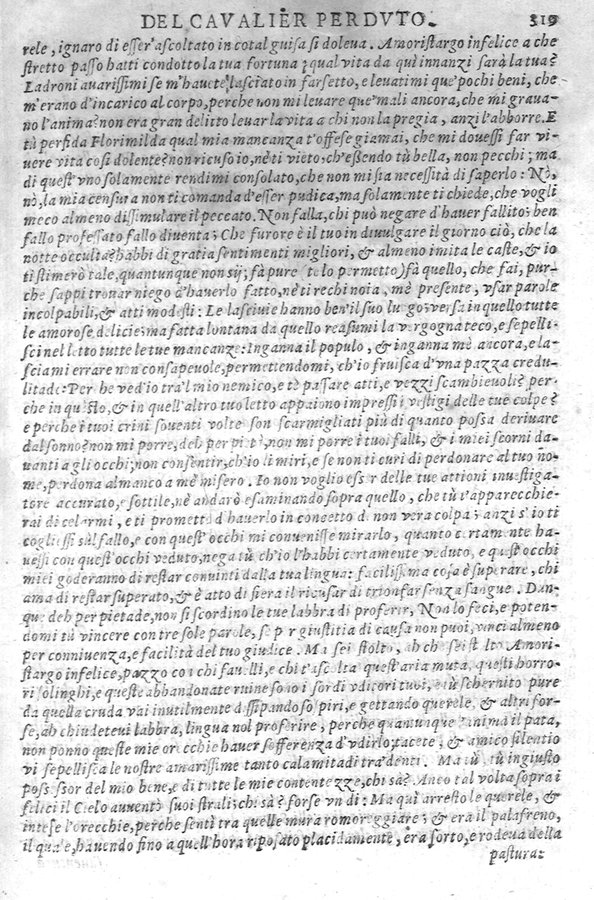 DEL CAVALIER PERDVTO. 319
rele, ignaro di esser'ascoltato in cotal guisa si doleva. Amoristargo infelice a che
stretto passo hatti condotto la tua fortuna? qual vita da quì innanzi sarà la tua?
Ladroni avarissimi se m'havete lasciato in farsetto, e levatimi que'pochi beni, che
m'erano d'incarico al corpo, perche non mi levare que'mali ancora, che mi grava-
no l'anima? non era gran delitto levar la vita a chi non la pregia, anzi l'abborre. E
tù perfida Florimilda qual mia mancanza t'offese giamai, che mi dovessi far vi-
uere vita così dolente? non ricuso io, nè ti vieto, ch'essendo tù bella, non pecchi; ma
di quest'vno solamente rendimi consolato, che non mi sia necessità di saperlo: Nò,
nò, la mia censura non ti comanda d'esser pudica, ma solamente ti chiede, che vogli
meco almeno dissimulare il peccato. Non falla, chi può negare d'hauer fallito; ben
fallo professato fallo diuenta; Che furore è il tuo in diuulgare il giorno ciò, che la
notte occulta? habbi di gratia sentimenti migliori, & almeno imita le caste, & io
ti stimerò tale, quantunque non sij; fà pure (te lo permetto) fà quello, che fai, pur-
che sappi trouar niego d'hauerlo fatto, nè ti rechi noia, me presente, vsar parole
incolpabili, & atti modesti: Le lasciuie hanno ben'il suo luogo; versa in quello tutte
le amorose delicie; ma fatta lontana da quello reasumi la vergogna teco, e sepelli-
sci nel letto tutte le tue mancanze: Inganna il populo, & inganna mè ancora, e la-
sciami errare non consapeuole, permettendomi, ch'io fruisca d'vna pazza credu-
litade: Perche ved'io tra'l mio nemico, e tè passare atti, e vezzi scambieuoli? per-
che in questo, & in quell'altro tuo letto appaiono impressi i vestigi delle tue colpe?
e perche i tuoi crini souenti volte son scarmigliati più di quanto possa deriuare
dal sonno? non mi porre, deh per pietà, non mi porre i tuoi falli, & i miei scorni da-
uanti agli occhi; non consentir, ch'io li miri, e se non ti curi di perdonare al tuo no-
me, perdona almanco a mè misero. Io non voglio esser delle tue attioni inuestiga-
tore accurato, e sottile, nè andarò esaminando sopra quello, che tù t'apparecchie-
rai di celarmi, e ti prometto d'hauerlo in concetto di non vera colpa; anzi s'io ti
cogliessi sùl fallo, e con quest'occhi mi conuenisse mirarlo, quanto certamente ha-
uessi con quest'occhi veduto, nega tù ch'io l'habbi certamente veduto, e quest'occhi
miei goderanno di restar conuinti dalla tua lingua: facilissima cosa è superare, chi
ama di restar superato, & è atto di fiera il ricusar di trionfar senza sangue. Dun-
que deh per pietade, non si scordino le tue labbra di proferir, Non lo feci, e poten-
domi tù vincere con tre sole parole, se per giustitia di causa non puoi, vinci almeno
per conniuenza, e facilità del tuo giudice. Ma sei stolto, ah che sei stolto Amori-
stargo infelice, pazzo con chi fauelli, e chi t'ascolta? quest'aria muta, questi horro-
ri solinghi, e queste abbandonate ruine sono i sordi vditori tuoi, e tù schernito pure
da quella cruda vai inutilmente dissipando sospiri, e gettando querele, & altri for-
se, ah chindeteui labbra, lingua nol proferire, perche quantunque l'anima il pata,
non ponno queste mie orecchie hauer sofferenza d'vdirlo; tacete, & amico silentio
vi sepellisca le nostre amarissime tanto calamitadi tra'denti. Ma tù, tù ingiusto
possessor del mio bene, e di tutte le mie contentezze, chi sà? Anco tal volta sopra i
felici il Cielo auuentò suoi strali; chi sà? forse vn dì: Ma quì arrestò le querele, &
intese l'orecchie, perche sentì tra quelle mura romoreggiare; & era il palafreno,
il quale, hauendo fino a quell'hora riposato placidamente, era sorto, e rodeua della
pastura: